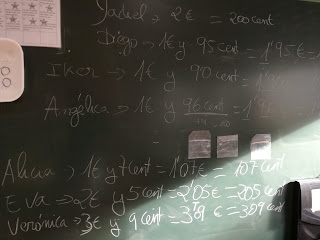 Yadiel → 2€ = 200 cent
Diego → 1€ y 95 cent = 1'95€ =
Iker → 1€ y 90 cent =
Angélica → 1€ y 96 cent =
Alicia → 1€ y 7 cent = 1'07€ = 107 cent
Eva → 2€ y 5 cent = 2'05€ = 205 cent
Verónica → 3€ y 9 cent = 3'09 € = 309 cent